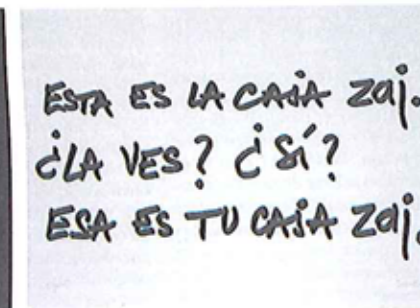 ESTA ES LA CAJA zaj.
¿LA VES? ¿SÍ?
ESA ES TU CAJA zaj.